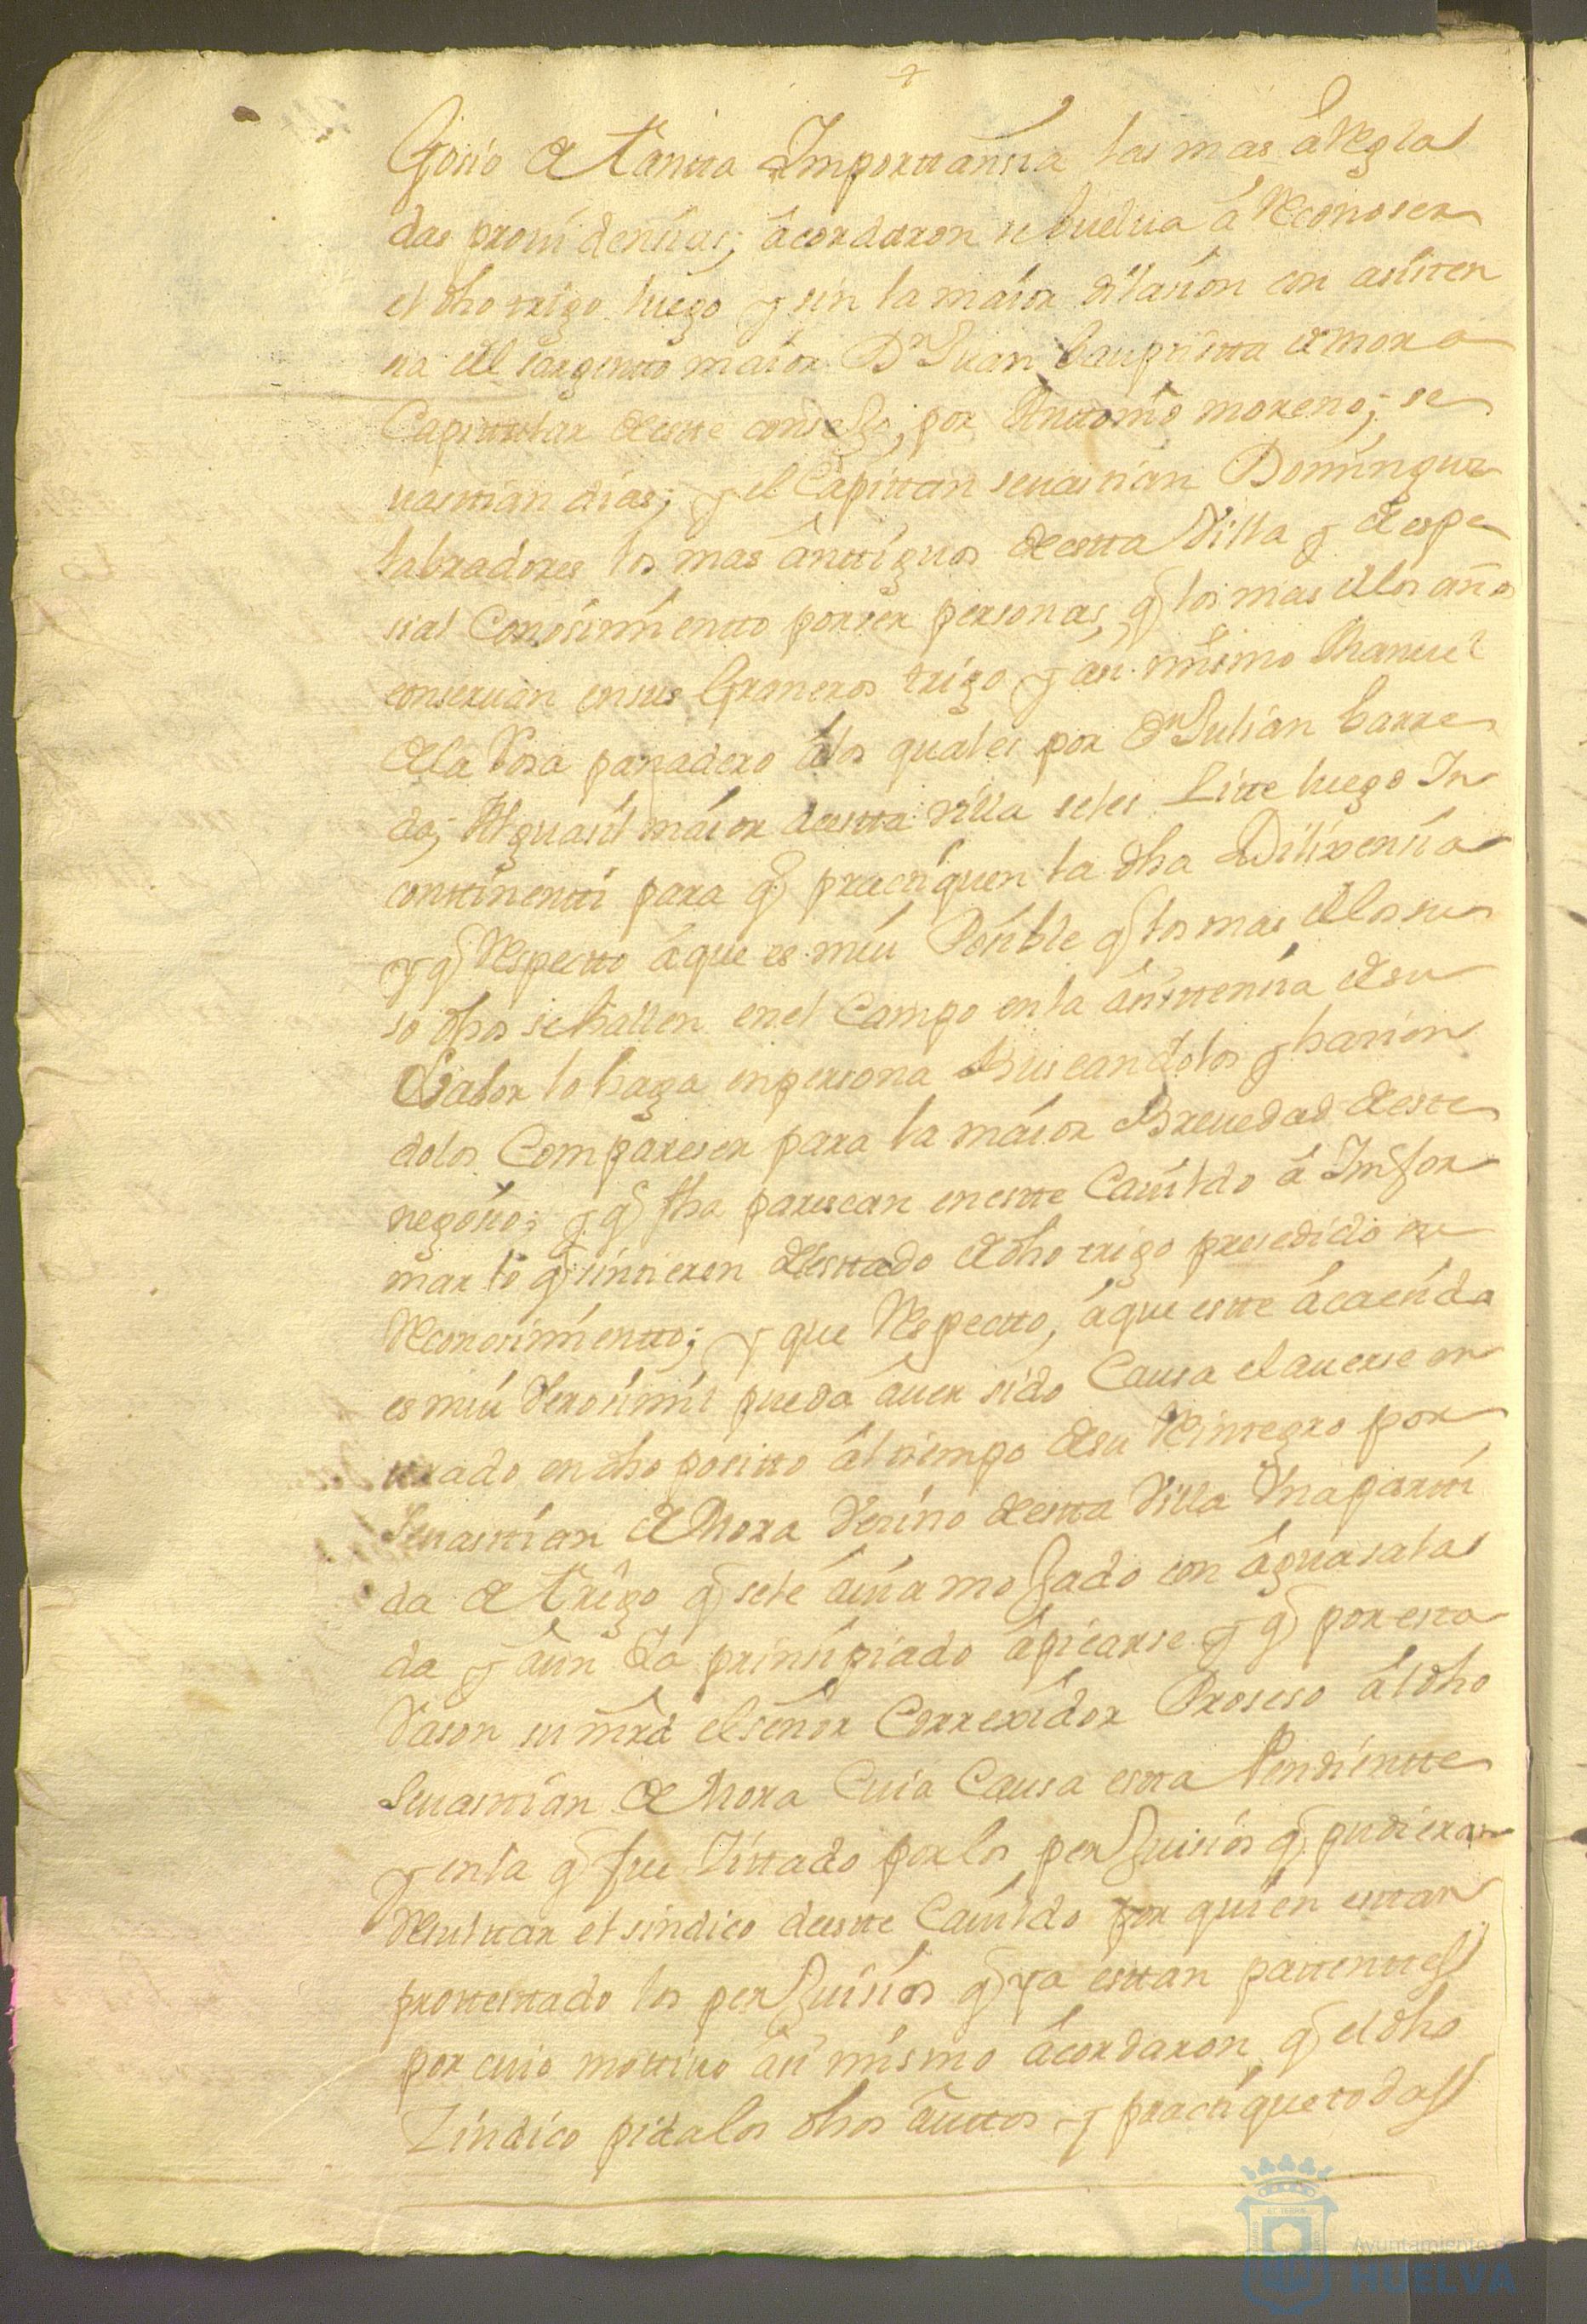 gosio de tantta Importtansia las mas áRegla
das prouidensias; ácordaron se buelua á Reconoser
el dho trigo luego y sin la maior dilasion con asisten
sia del sargentto maior Dn Juan bauptista de mora
Capittular deeste consejo, por Anttonio moreno; se
uasttian dias; y el Capittan seuastian Domingues
labradores los mas ánttiguos deestta Villa y de espe
sial Conosimientto por ser personas, q los mas delos años
conseruan ensus Graneros trigo y asi mismo Manuel
dela Rosa panadero álos quales por Dn Julian barre
da; Alguasil maior deestta villa seles Sitte luego In
conttinentti para q practiquen la dha Dilixensia
y q Respectto áque es mui Posible q los mas delos su
so dhos se hallen enel Campo enla ásisttensia desu
Labor lo haga enpersona Buscandolos y hasien
dolos Compareser para la maior Breuedad deeste
negosio; y q fho parescan eneste Cauildo á Infor
mar lo q sintieren delesttado dedho trigo presedido su
Reconosimientto; y que Respectto, áque este ácaesida
es mui Verosimil pueda áuer sido Causa el auerse en
trado en dho positto ál tiempo desu Reinttegro por
Seuasttian de Mora Vesino deestta Villa Vna parti
da de trigo q sele áuia mojado con águasala
da y áun Ya prinsipiado ápicarse y q por esta
Rason su mrd el señor Correxidor Proseso ál dho
Seuasttian de Mora Cuia Causa estta Pendiente
y enla q fue Sittado por los perjuisios q pudieran
Resulttar el sindico deeste Cauildo por quien estan
prottesttado los perjuisios q ya esttan pattenttes
por cuio mottiuo ási mismo ácordaron q el dho
Sindico pida los dhos áuttos y practique todas
Ayuntamiento de
HUELVA